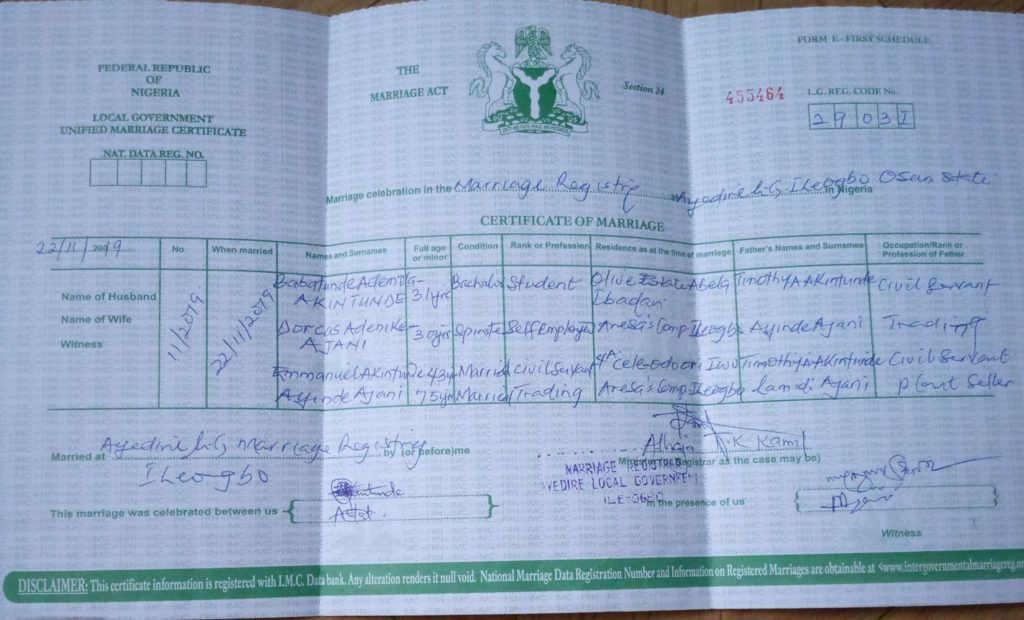 FEDERAL REPUBLIC
OF
NIGERIA
LOCAL GOVERNMENT
UNIFIED MARRIAGE CERTIFICATE
NAT. DATA REG. NO.
THE
MARRIAGE ACT
Section 24
FORM E-FIRST SCHEDULE
455464
L.G. REG. CODE No.
29031
Marriage celebration in the Marriage Registry at Ayedire L.G, ILeogbo Osun State in Nigeria
CERTIFICATE OF MARRIAGE
22/11/ 2019
No
When married
Names and Surnames
Full age or minor
Condition
Rank or Profession
Residence as at the time of marriage
Father's Names and Surnames
Occupation/Rank or Profession of Father
Name of Husband
Name of Wife
Witness
11/2019
22/11/2019
Babatunde
AKINTUNDE 31yrs Bachelor Student Olive Estate Ibadan Timothy A AKintunde Civil Servant
Dorcas Adenike
AJANI 30yrs Spinster Self Employed Aresa's Comp. ILeogbo Ayinde Ajani Trading
Emmanuel AKintunde 43yrs Married Civil Servant Iwo Timothy A. AKintunde Civil Servant
Ayinde Ajani 75yrs Married Trading Aresa's Comp. ILeogbo Lamidi Ajani Plant Seller
Married at Ayedire L.G Marriage Registry
ILeogbo
by (or before)me
Alhaja T.K Kamil
Registrar as the case may be)
MARRIAGE REGISTRAR
AYEDIRE LOCAL GOVERNMENT
ILE-OGBO
This marriage was celebrated between us
In the presence of us
Witness
DISCLAIMER: This certificate information is registered with I.M.C. Data bank. Any alteration renders it null void. National Marriage Data Registration Number and Information on Registered Marriages are obtainable at <www.intergovernmentalmarriagereg.or